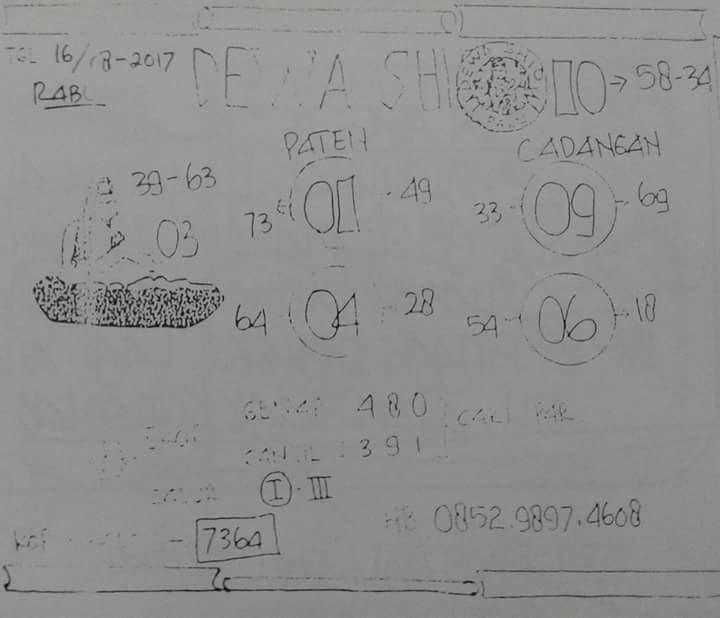 TGL 16/08-2017
RABU
DEWA SHI
10 → 58-34
PATEN
CADANGAN
39-63
03
73 01 49
33 09 69
64 04 28
54 06 18
GENAP 480
GANJIL : 391
CALI PAR
I - III
HB 0852.9897.4608
7364